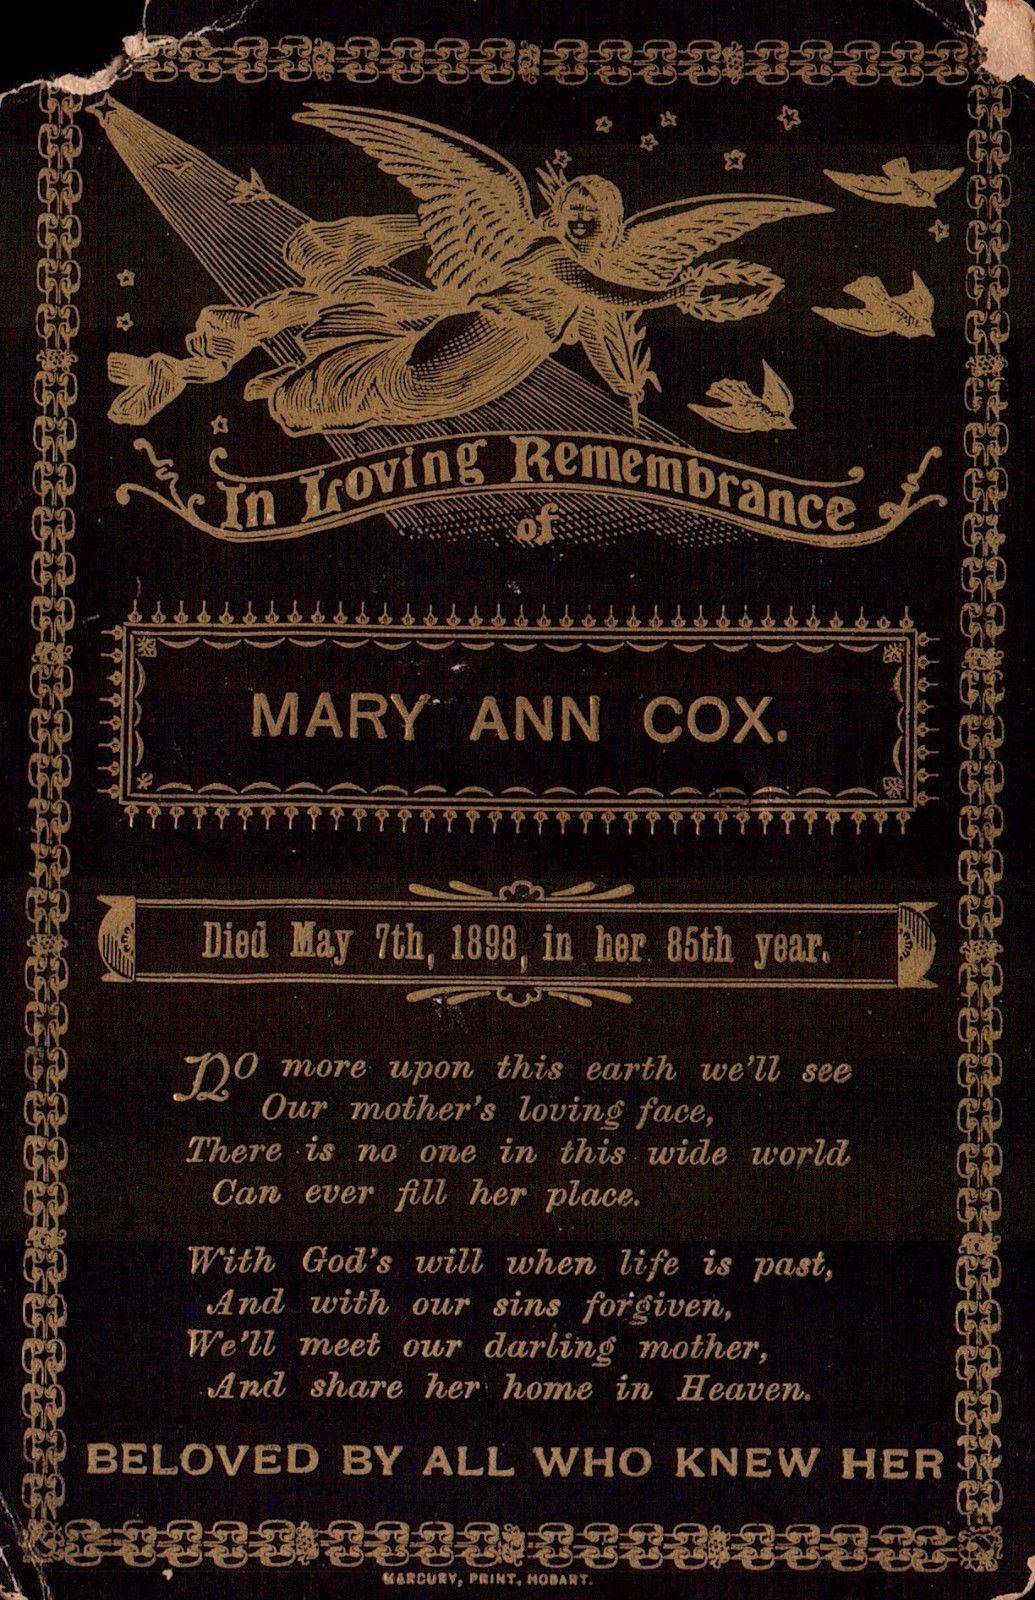 In Loving Remembrance
of
MARY ANN COX.
Died May 7th, 1898, in her 85th year.
No more upon this earth we'll see
Our mother's loving face,
There is no one in this wide world
Can ever fill her place.
With God's will when life is past,
And with our sins forgiven,
We'll meet our darling mother,
And share her home in Heaven.
BELOVED BY ALL WHO KNEW HER
MERCURY, PRINT, HOBART.